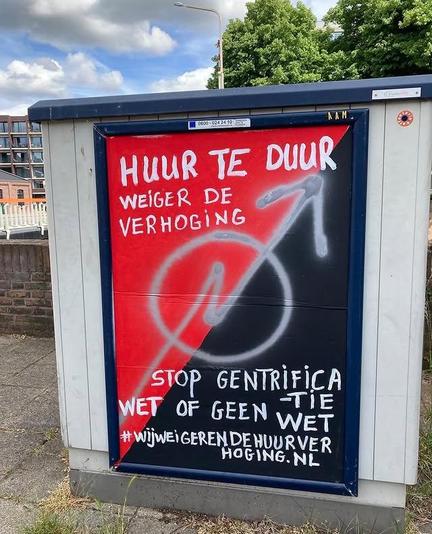 0800 - 024 24 10
HUUR TE DUUR
WEIGER DE
VERHOGING
STOP GENTRIFICA
-TIE
WET OF GEEN WET
#WIJWEIGERENDEHUURVER
HOGING.NL